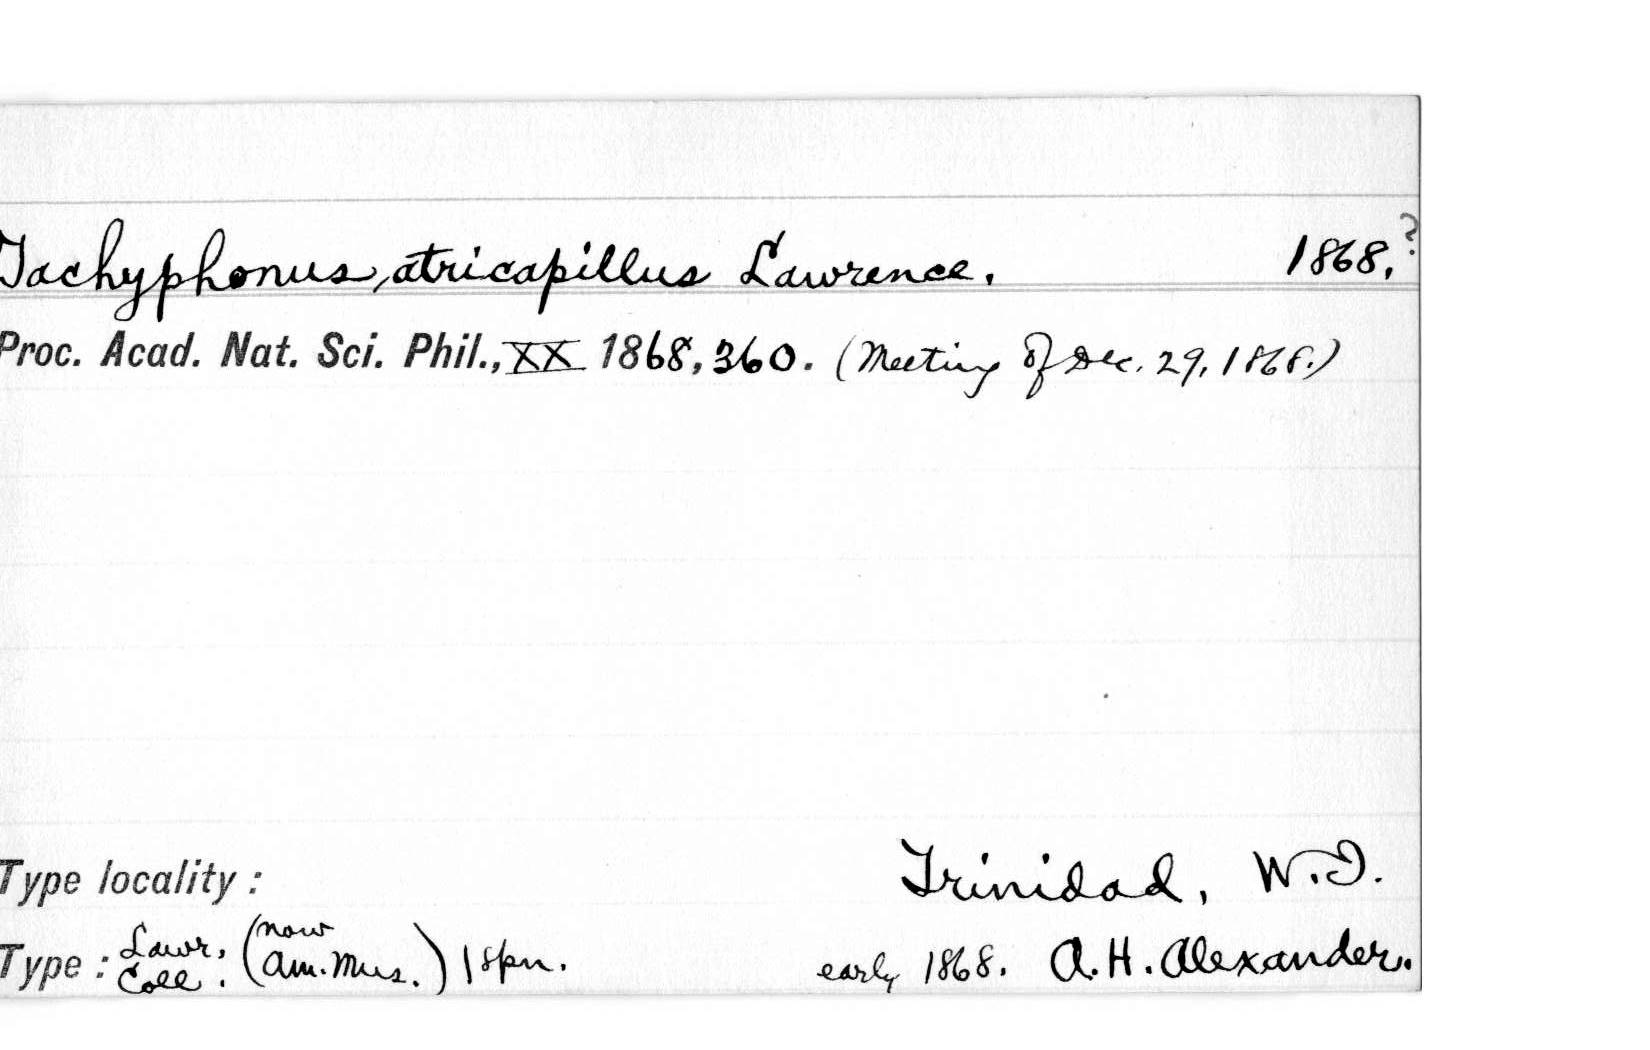 Tachyphonus, atricapillus Lawrence. 1868.?
Proc. Acad. Nat. Sci. Phil., XX 1868, 360. (Meeting of Dec. 29, 1868.)
Type locality: Trinidad, W.I.
Type: Lawr. Coll. (now Am. Mus.) 1 spn. early 1868. A.H. Alexander.